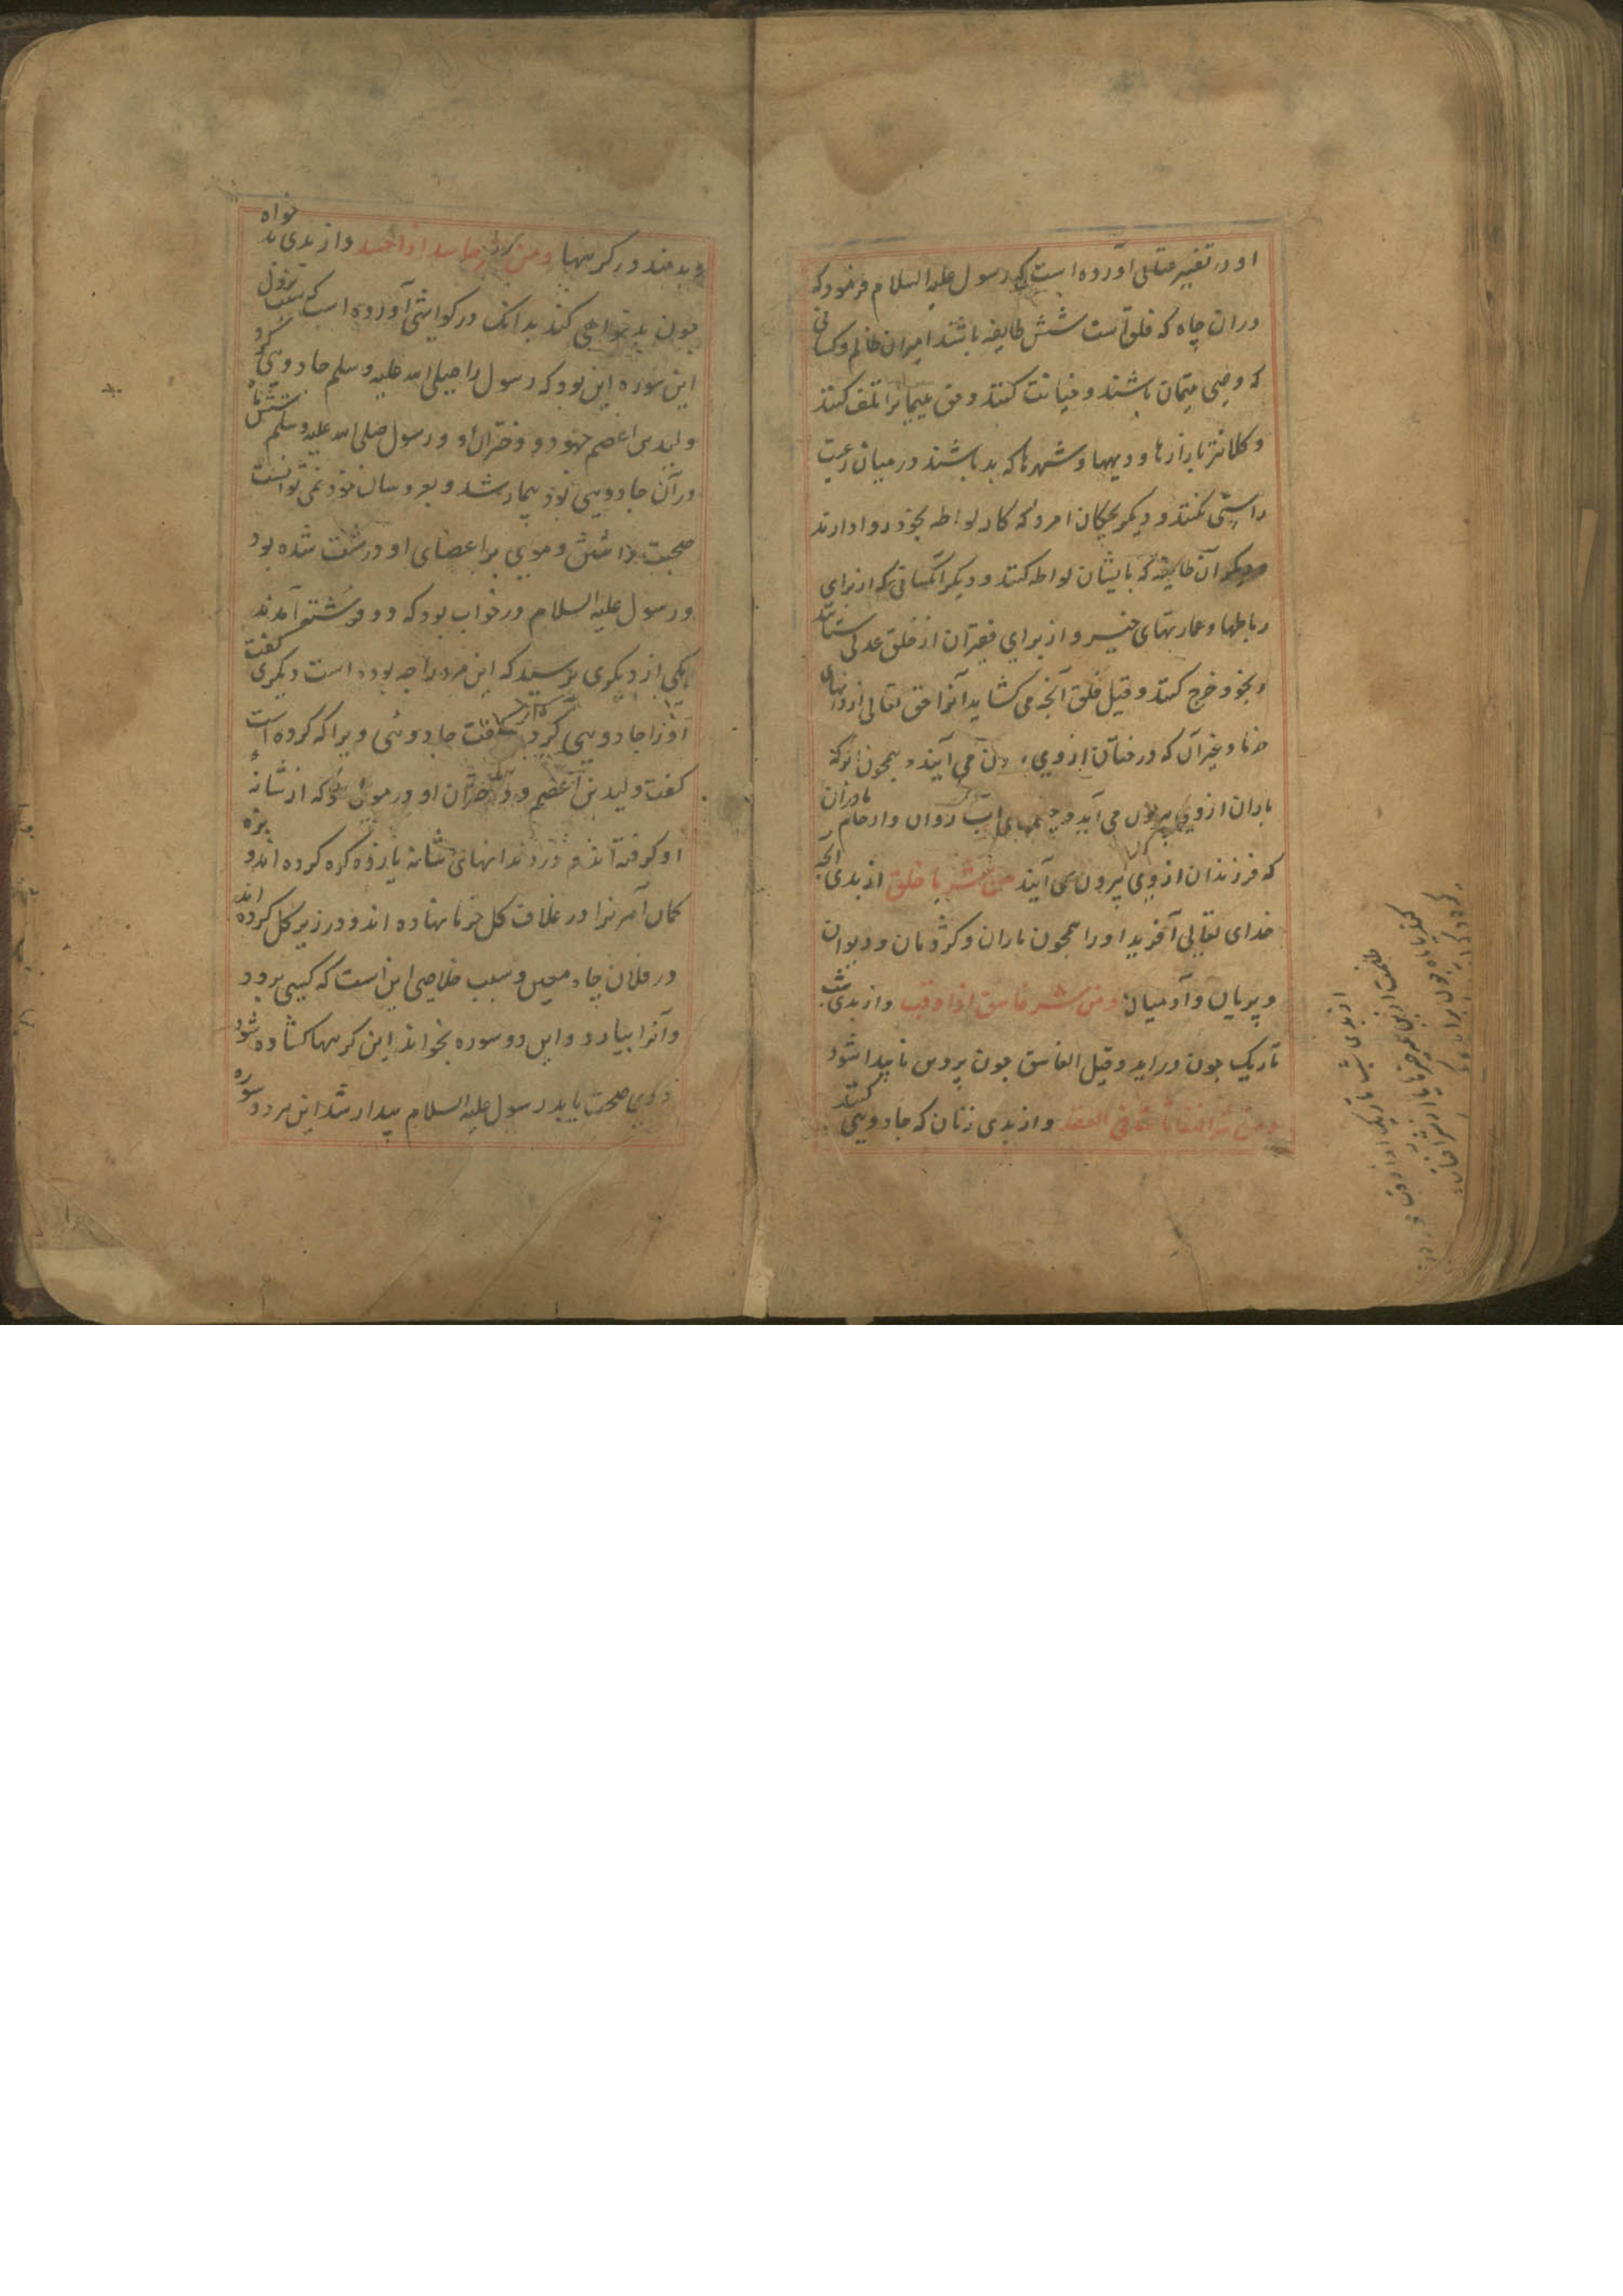 او در تفسیر عتابی آورده است که رسول علیه السلام فرمود که
دران چاه که فلق است شش طایفه باشند امیران ظالم و کسانی
که وصی یتیمان باشند و خیانت کنند و حق یتیمانرا تلف کنند
و کلانتر بازارها و دیهها و شهرها که بد باشند در میان رعیت
راستی نکنند و دیکر بچکان امرد که کار لواطه بخود روا دارند
و دیکر آن طایفه که بایشان لواطه کنند و دیکر آنکسانی که از برای
رباطها و عمارتهای خیر و از برای فقیران از خلق عدلی ستانند
و بخود خرج کنند و قیل فلق آنچه می کشاید آنرا حق تعالی از دانهای
خرما و غیر آن که درختان ازوی برون می آیند و همچون ابر که
باران ازوی بیرون می آید و چشمهای آب روان و ارحام مادران
که فرزندان ازوی بیرون می آیند من شر ما خلق از بدی آنچه
خدای تعالی آفرید او را همچون ماران و کژدمان و دیوان
و پریان و آدمیان و من شر غاسق اذا وقب و از بدی شب
تاریک چون دراید و قیل الغاسق چون پروین نا پیدا شود
و من شر النفاثات فی العقد و از بدی زنان که جادویی کنند
و بدمند در کرهها و من شر حاسد اذا حسد و از بدی بد خواه
چون بد خواهی کند بدانک در کواشی آورده است که سبب نزول
این سوره این بود که رسول را صلی الله علیه و سلم جادویی کرد
ولید بن اعصم جهود و دختران او و رسول صلی الله علیه وسلم شش ماه
در آن جادویی بود بیمار شد و بعروسان خود نمی توانست
صحبت داشتن و موی بر اعضای او درشت شده بود
و رسول علیه السلام در خواب بود که دو فرشته آمدند
یکی از دیکری پرسید که این مرد را چه بوده است دیکری کفت
او را جادویی کرده اند کفت جادوئی ویرا که کرده است
کفت ولید بن اعصم و دختران او در موی او که از شانهٔ
او کرفته اند و در دندانهای شانه یازده کره کرده اند و بزه
کمان آمرنرا در غلاف کل خرما نهاده اند و در زیر کل کرده اند
در فلان چاه معین و سبب خلاصی این است که کسی برود
و آنرا بیارد و این دو سوره بخواند این کرهها کشاده شود
و وی صحت یابد رسول علیه السلام بیدار شد این هر دو سوره